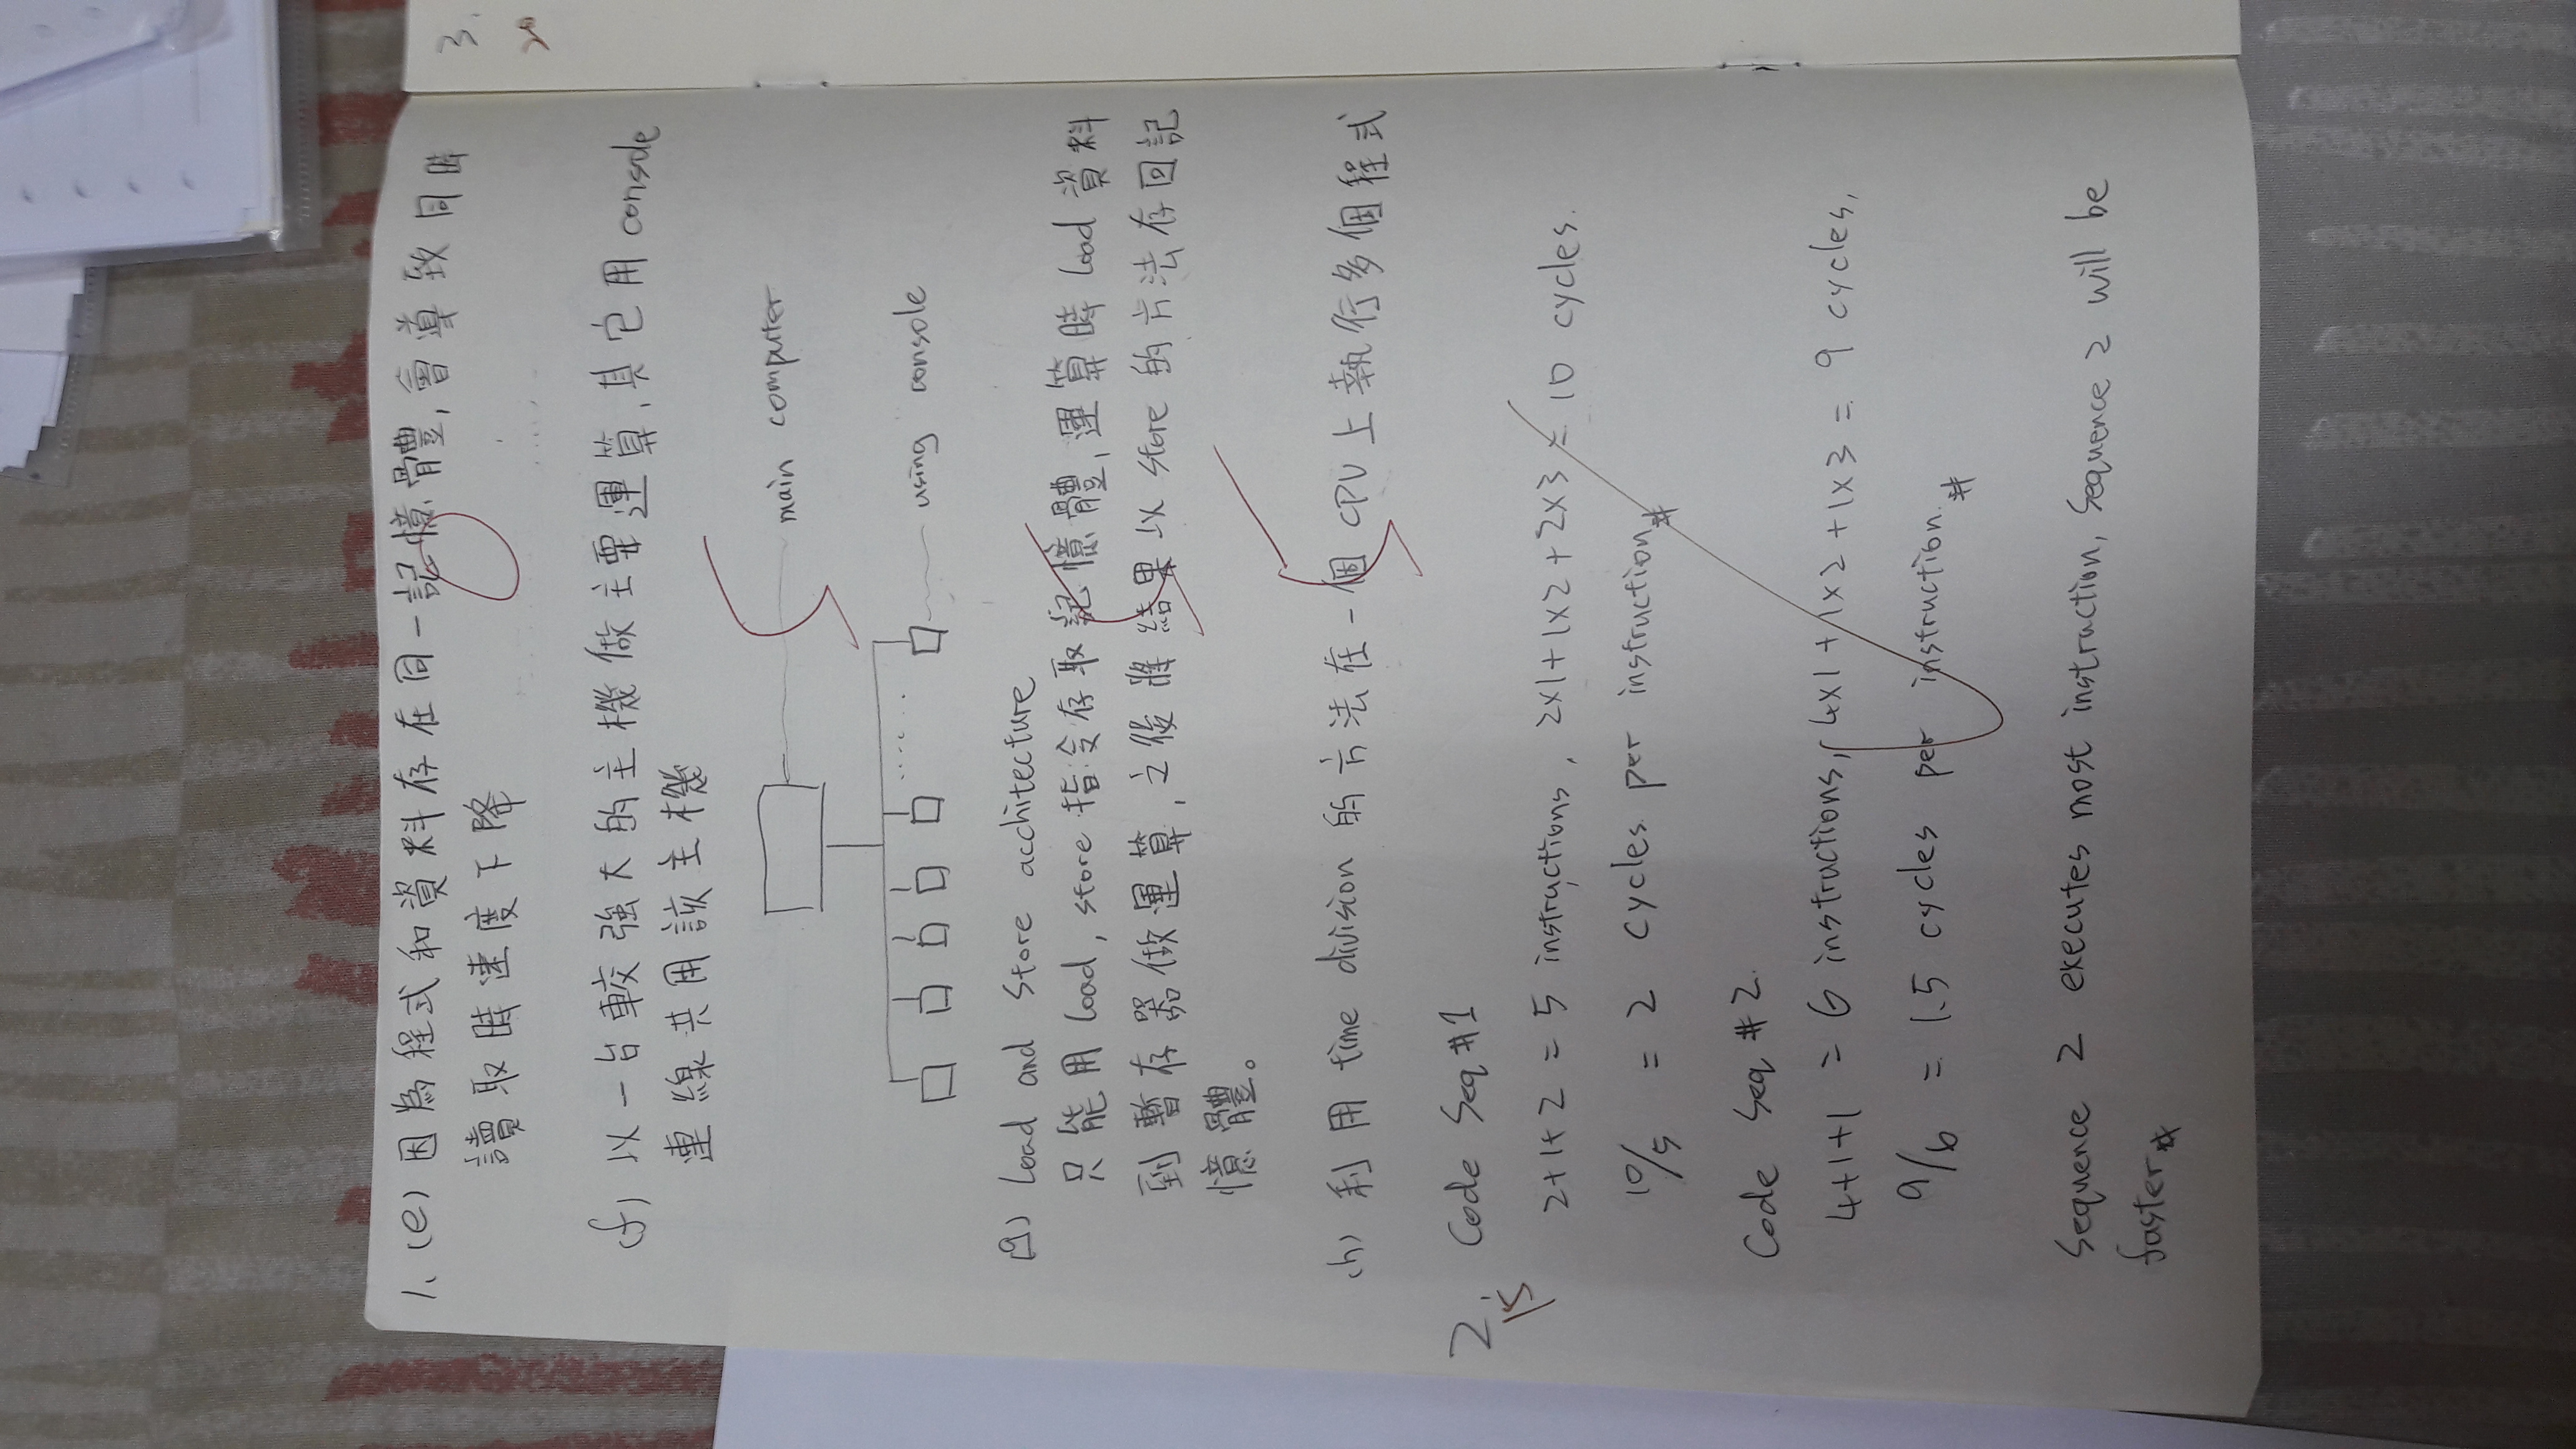 1. (e) 因為程式和資料存在同一記憶體, 會導致同時
讀取時速度下降
(f) 以一台較強大的主機做主要運算, 其它用 console
連線共用該主機
main computer
......
using console
(g) Load and Store acchitecture
只能用 load, store 指令存取記憶體, 運算時 load 資料
到暫存器做運算, 之後將結果以 store 的方法存回記
憶體。
(h) 利用 time division 的方法在一個 CPU 上執行多個程式
2. Code Seq #1
15
2+1+2 = 5 instructions, 2x1+1x2+2x3 = 10 cycles.
10/5 = 2 cycles per instruction #
Code Seq #2.
4+1+1 = 6 instructions, 4x1+1x2+1x3 = 9 cycles,
9/6 = 1.5 cycles per instruction. #
Sequence 2 executes most instruction, Sequence 2 will be
faster #
3.
20